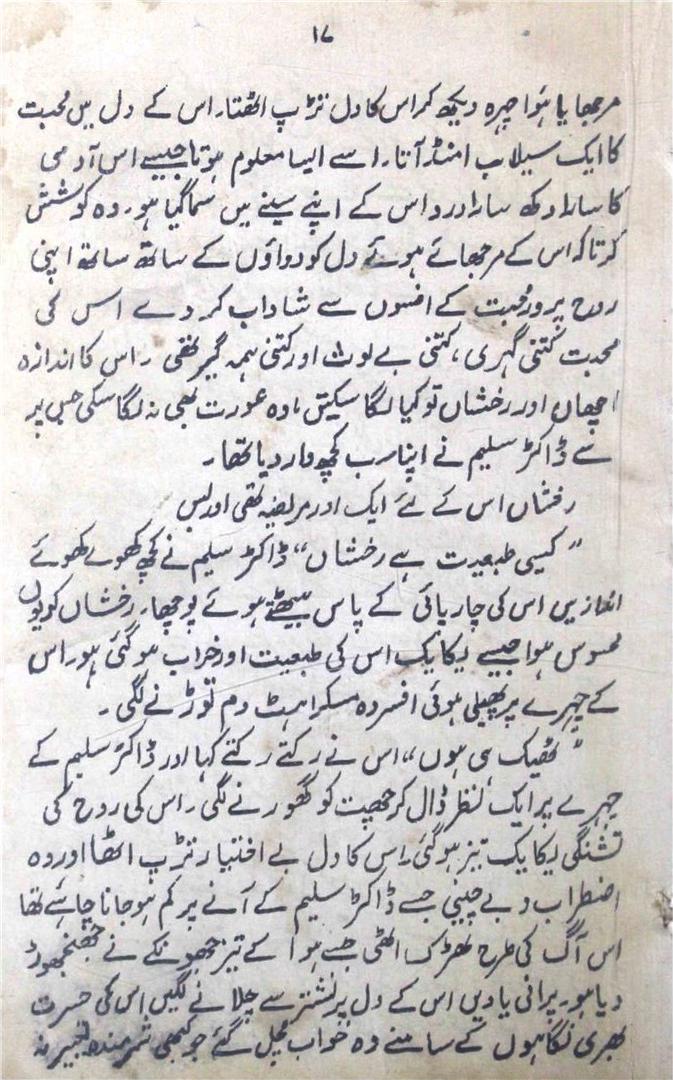 ۱۷
مرجھایا ہوا چہرہ دیکھ کر اس کا دل تڑپ اٹھتا۔ اس کے دل میں محبت
کا ایک سیلاب امنڈ آتا۔ اسے ایسا معلوم ہوتا جیسے اس آدمی
کا سارا دکھ سارا درد اس کے اپنے سینے میں سما گیا ہو۔ وہ کوشش
کرتا کہ اس کے مرجھائے ہوئے دل کو دواؤں کے ساتھ ساتھ اپنی
روح پرور محبت کے افسوں سے شاداب کر دے اس کی
محبت کتنی گہری، کتنی بے لوث اور کتنی ہمہ گیر تھی۔ اس کا اندازہ
اچھاں اور رخشاں تو کیا لگا سکیتں، وہ عورت بھی نہ لگا سکی جس پر
سے ڈاکٹر سلیم نے اپنا سب کچھ وار دیا تھا۔
رخشاں اس کے لئے ایک اور مریضہ تھی اور بس
"کیسی طبعیت ہے رخشاں" ڈاکٹر سلیم نے کچھ کھوئے کھوئے
انداز میں اس کی چارپائی کے پاس بیٹھتے ہوئے پوچھا۔ رخشاں کو یوں
محسوس ہوا جیسے یکایک اس کی طبعیت اور خراب ہو گئی ہو۔ اس
کے چہرے پر پھیلی ہوئی افسردہ مسکراہٹ دم توڑنے لگی۔
"ٹھیک ہی ہوں" اس نے رکتے رکتے کہا اور ڈاکٹر سلیم کے
چہرے پر ایک نظر ڈال کر چھت کو گھورنے لگی۔ اس کی روح کی
تشنگی یکایک تیز ہو گئی۔ اس کا دل بے اختیار تڑپ اٹھا اور وہ
اضطراب و بے چینی جسے ڈاکٹر سلیم کے آنے پر کم ہو جانا چاہئے تھا
اس آگ کی طرح بھڑک اٹھی جسے ہوا کے تیز جھونکے نے جھنجھوڑ
دیا ہو۔ پرانی یادیں اس کے دل پر نشتر سے چلانے لگیں اس کی حسرت
بھری نگاہوں کے سامنے وہ خواب مچل گئے جو کبھی شرمندہ تعبیر نہ